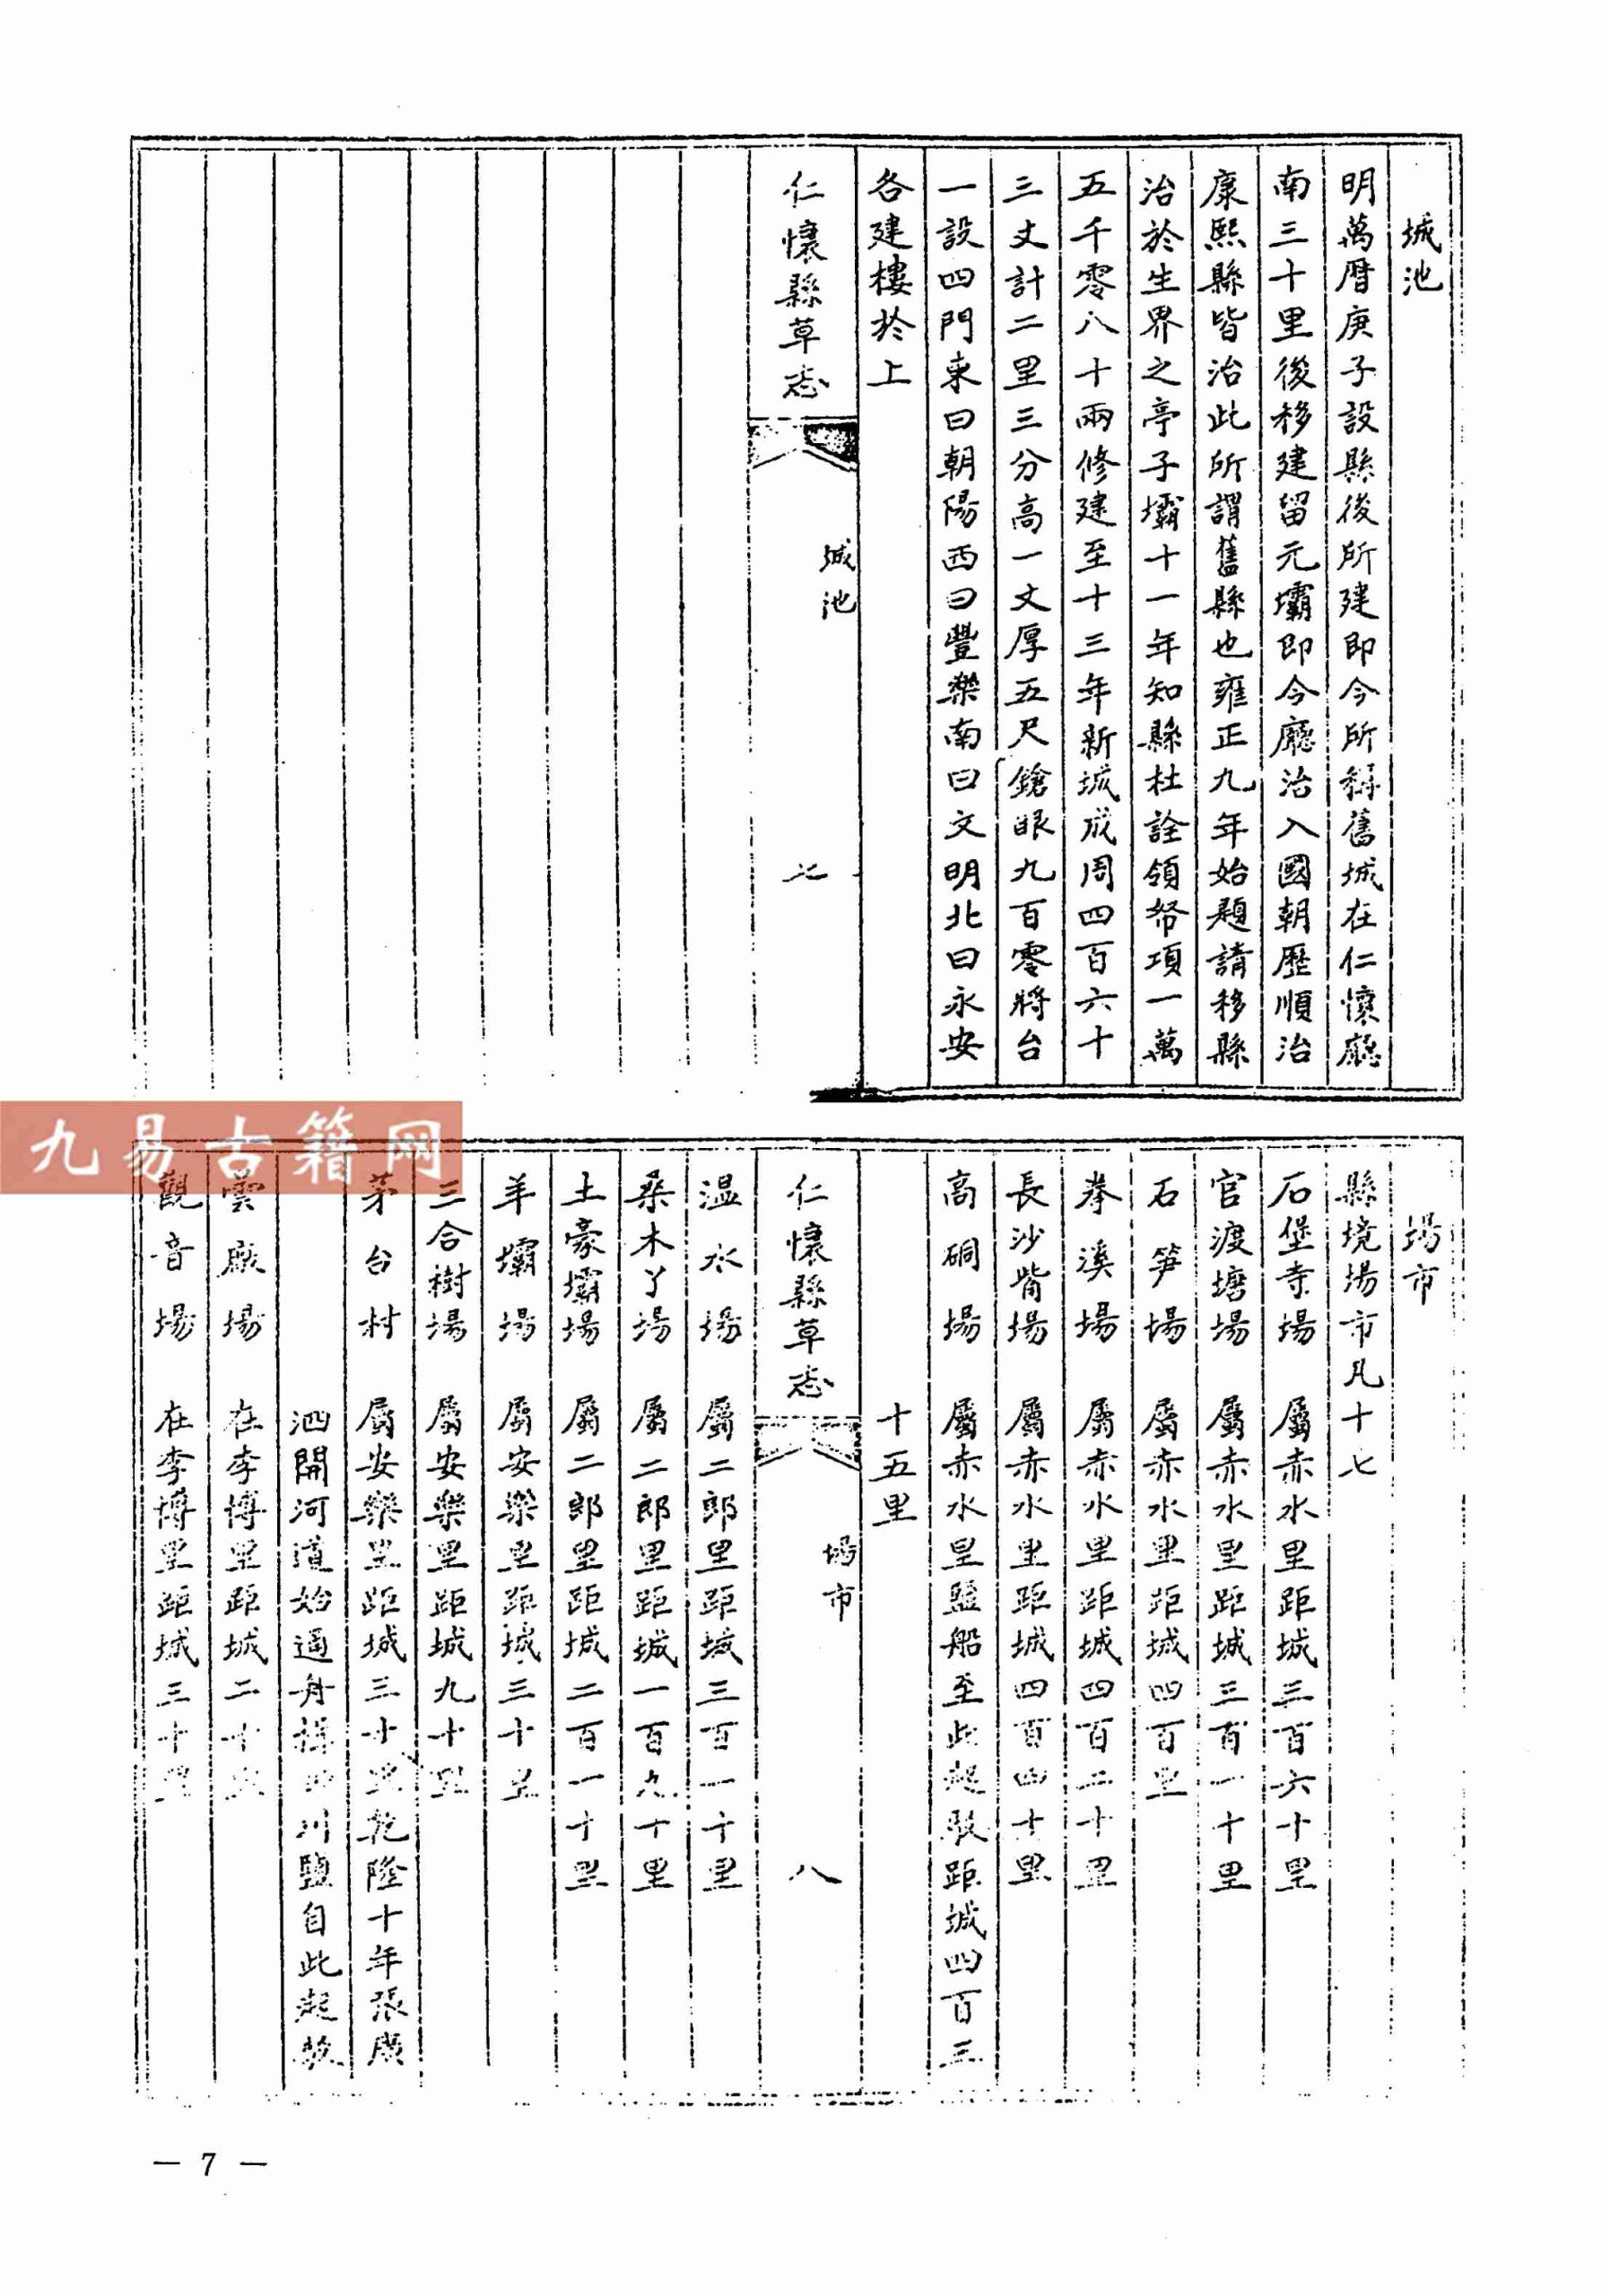 城池
明萬曆庚子設縣後所建即今所稱舊城在仁懷廳
南三十里後移建留元壩即今廳治入國朝歷順治
康熙縣皆治此所謂舊縣也雍正九年始題請移縣
治於生界之亭子壩十一年知縣杜詮領帑項一萬
五千零八十兩修建至十三年新城成周四百六十
三丈計二里三分高一丈厚五尺鎗眼九百零將台
一設四門東曰朝陽西曰豐樂南曰文明北曰永安
各建樓於上
仁懷縣草志
城池
七
場市
縣境場市凡十七
石堡寺場 屬赤水里距城三百六十里
官渡塘場 屬赤水里距城三百一十里
石笋場 屬赤水里距城四百里
拳溪場 屬赤水里距城四百二十里
長沙嘴場 屬赤水里距城四百四十里
高硐場 屬赤水里鹽船至此起駁距城四百三
十五里
仁懷縣草志
場市
八
温水場 屬二郎里距城三百一十里
桑木丫場 屬二郎里距城一百九十里
土豪壩場 屬二郎里距城二百一十里
羊壩場 屬安樂里距城三十里
三合樹場 屬安樂里距城九十里
茅台村 屬安樂里距城三十里乾隆十年張廣
泗開河道始通舟楫四川鹽自此起撥
雲廠場 在李博里距城二十里
觀音場 在李博里距城三十里
九易古籍网
— 7 —